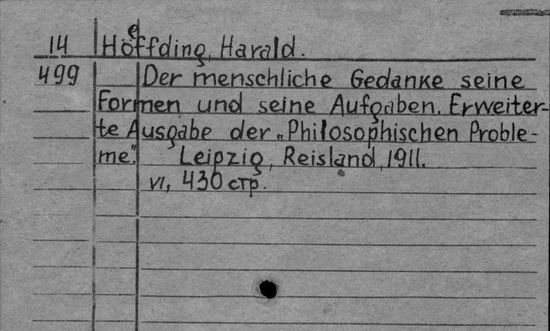 14 Höeffding, Harald.
499 Der menschliche Gedanke seine
Formen und seine Aufgaben. Erweiter-
te Ausgabe der „Philosophischen Proble-
me". Leipzig, Reisland, 1911.
VI, 430 стр.